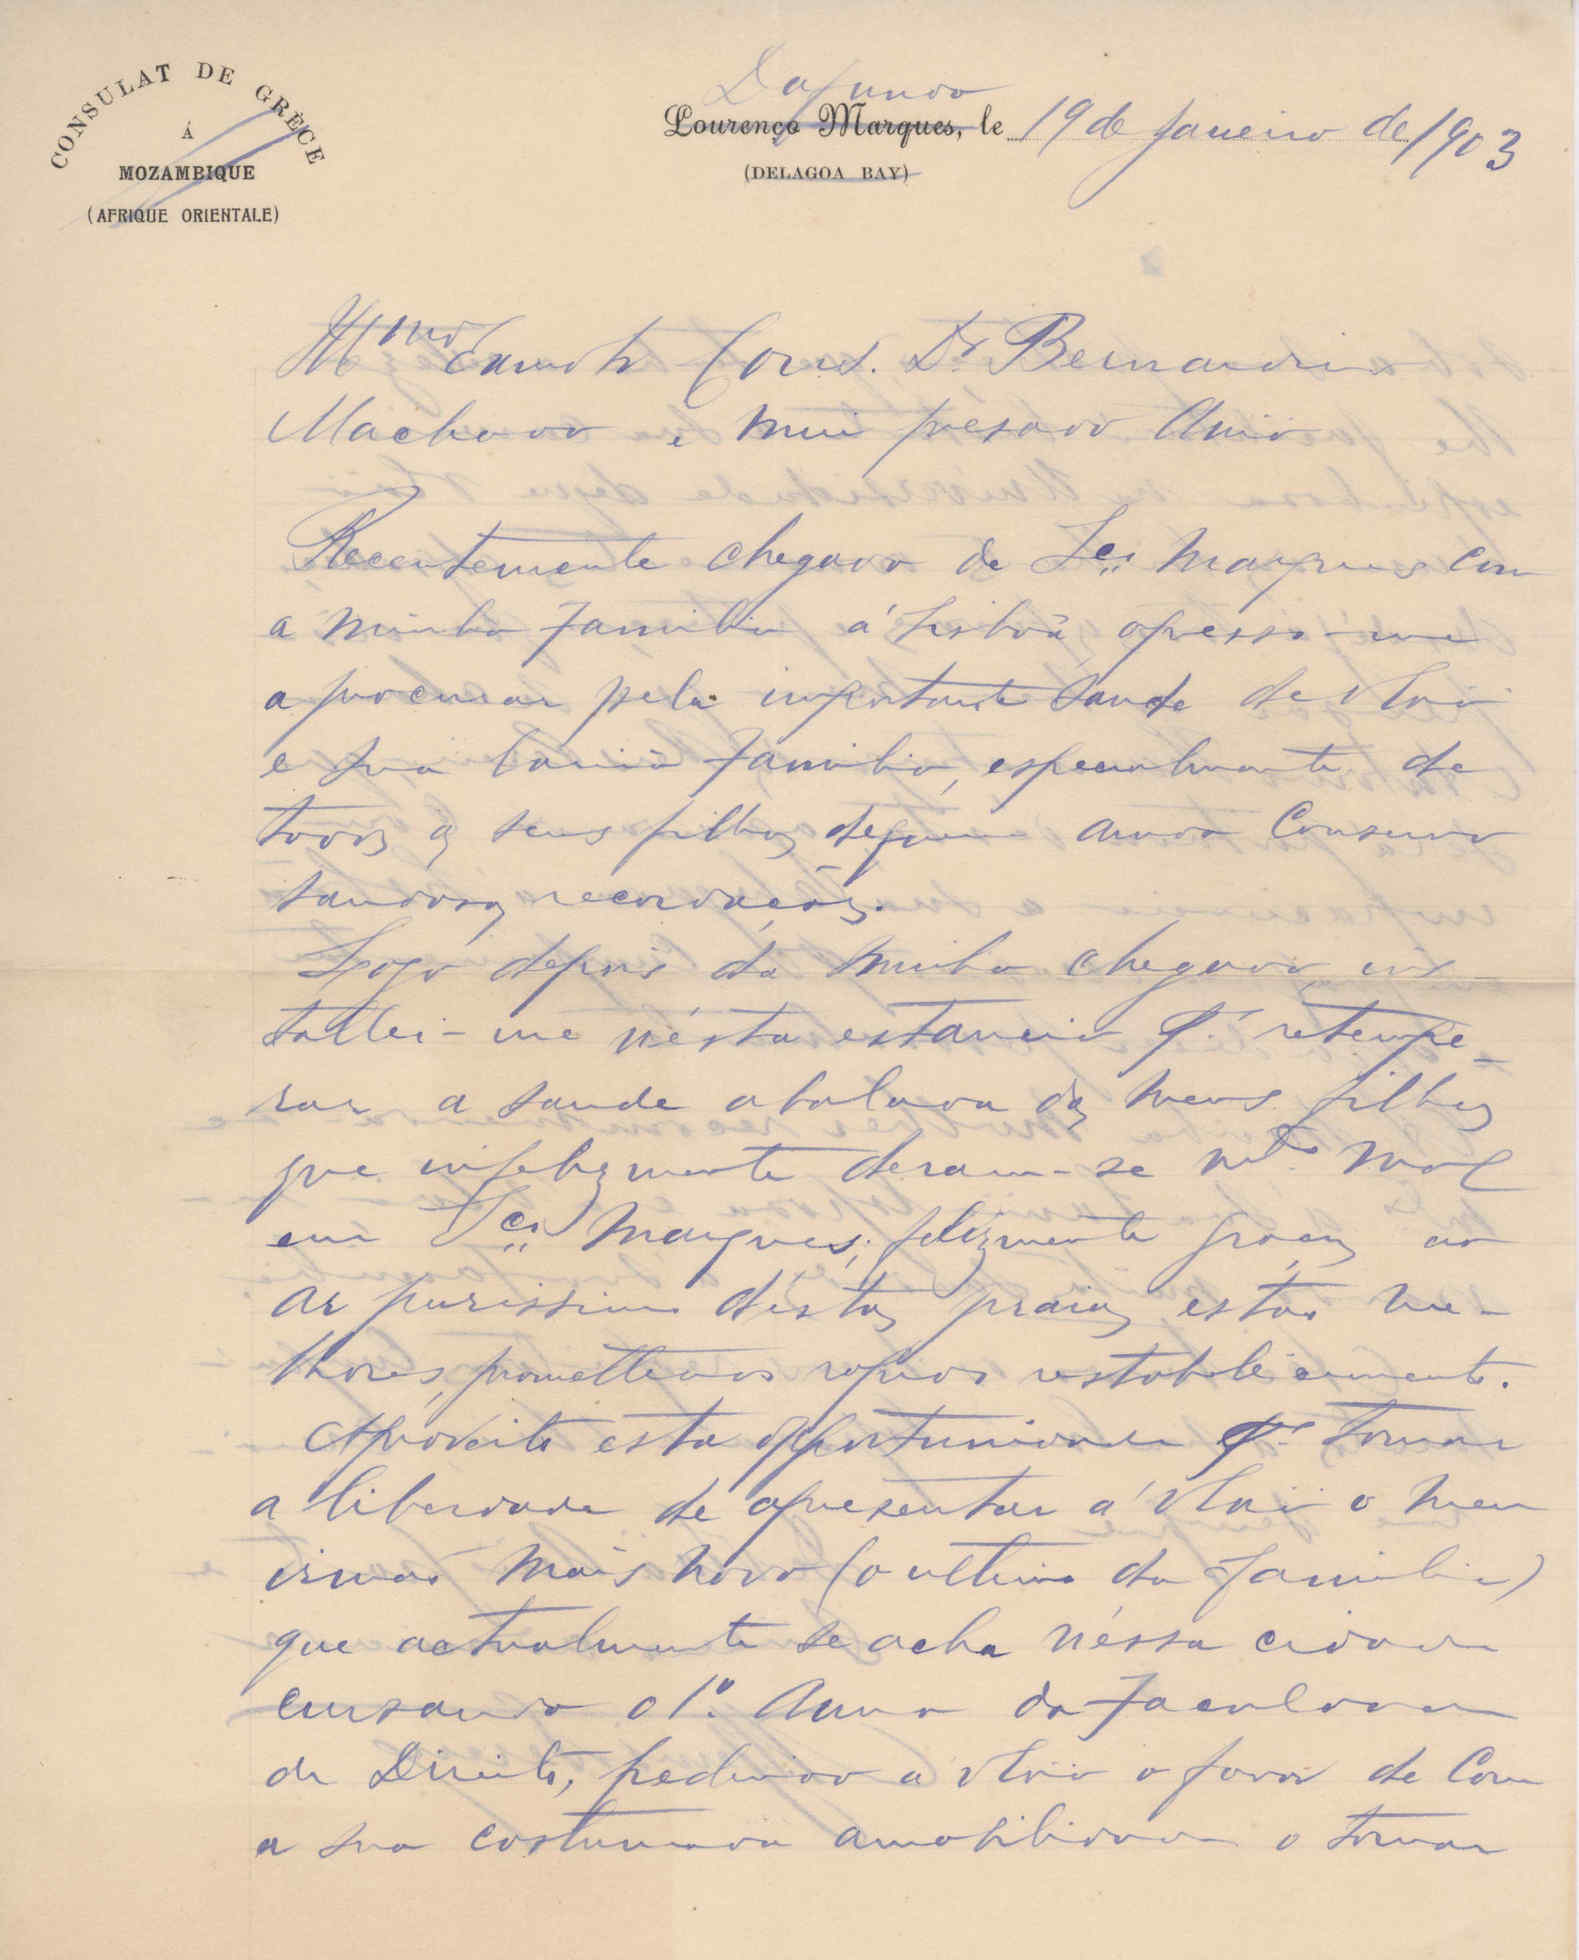 CONSULAT DE GRÈCE
Á
MOZAMBIQUE
(AFRIQUE ORIENTALE)
Dafundo
Lourenço Marques, le 19 de Janeiro de 1903
(DELAGOA BAY)
Illmo Exmo Sr Cons. Dr Bernardino
Machado e mui presado Amo
Recentemente chegado de Lço Marques com
a minha familia á Lisbôa, apresso-me
a procurar pela importante saude de V Exia
e sua familia, especialmente de
todos os seus filhos de quem ainda conservo
saudosas recordações.
Logo depois da minha chegada ins-
tallei-me nésta estancia pa retempe-
rar a saude abalada dos meus filhos
que infelizmente deram-se mto mal
em Lço Marques; felizmente graças ao
ar purissimo déstas praias estão me-
lhores, promettendo rapido restabelécimento.
Aproveito esta opportunidade pa tomar
a liberdade de apresentar á V Exia o meu
irmão mais novo (o ultimo da familia)
que actualmente se acha néssa cidade
cursando o 1º. Anno da Faculdade
de Direito, pedindo a V Exia o favor de com
a sua costumada amabilidade o tomar